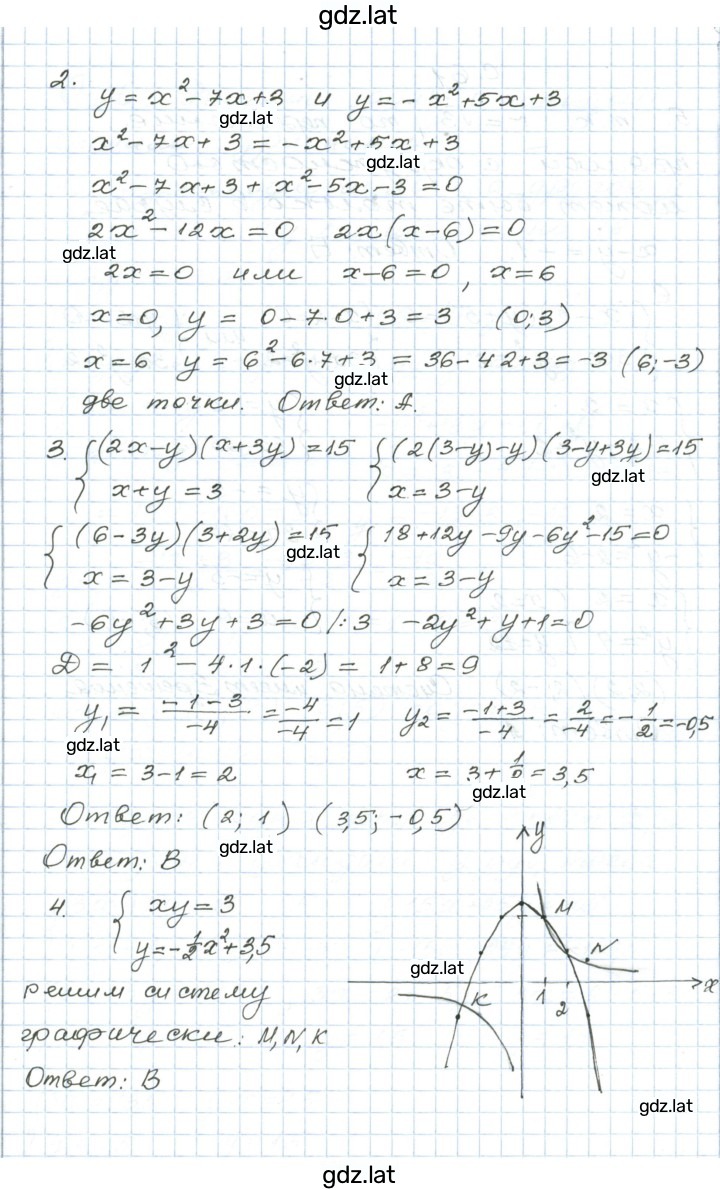 gdz.lat
2. y = x² - 7x + 3 и y = - x² + 5x + 3
gdz.lat
x² - 7x + 3 = - x² + 5x + 3
gdz.lat
x² - 7x + 3 + x² - 5x - 3 = 0
2x² - 12x = 0 2x(x-6) = 0
gdz.lat
2x = 0 или x-6 = 0, x = 6
x = 0, y = 0 - 7·0 + 3 = 3 (0; 3)
x = 6 y = 6² - 6·7 + 3 = 36 - 42 + 3 = -3 (6; -3)
gdz.lat
две точки. Ответ: А.
3. { (2x-y)(x+3y) = 15 { (2(3-y)-y)(3-y+3y) = 15
gdz.lat
x+y = 3 x = 3-y
{ (6-3y)(3+2y) = 15 { 18+12y-9y-6y²-15 = 0
gdz.lat
x = 3-y x = 3-y
-6y² + 3y + 3 = 0 /:3 -2y² + y + 1 = 0
D = 1² - 4·1·(-2) = 1+8 = 9
y₁ = (-1-3)/(-4) = (-4)/(-4) = 1 y₂ = (-1+3)/(-4) = 2/(-4) = -1/2 = -0,5
gdz.lat
x₁ = 3-1 = 2 x = 3 + = 3,5
gdz.lat
Ответ: (2; 1) (3,5; -0,5)
gdz.lat
Ответ: В
4. { xy = 3
y = -1/2x² + 3,5
решим систему
графически: M, N, K
Ответ: В
y
M
N
K
1
2
x
gdz.lat
gdz.lat
gdz.lat